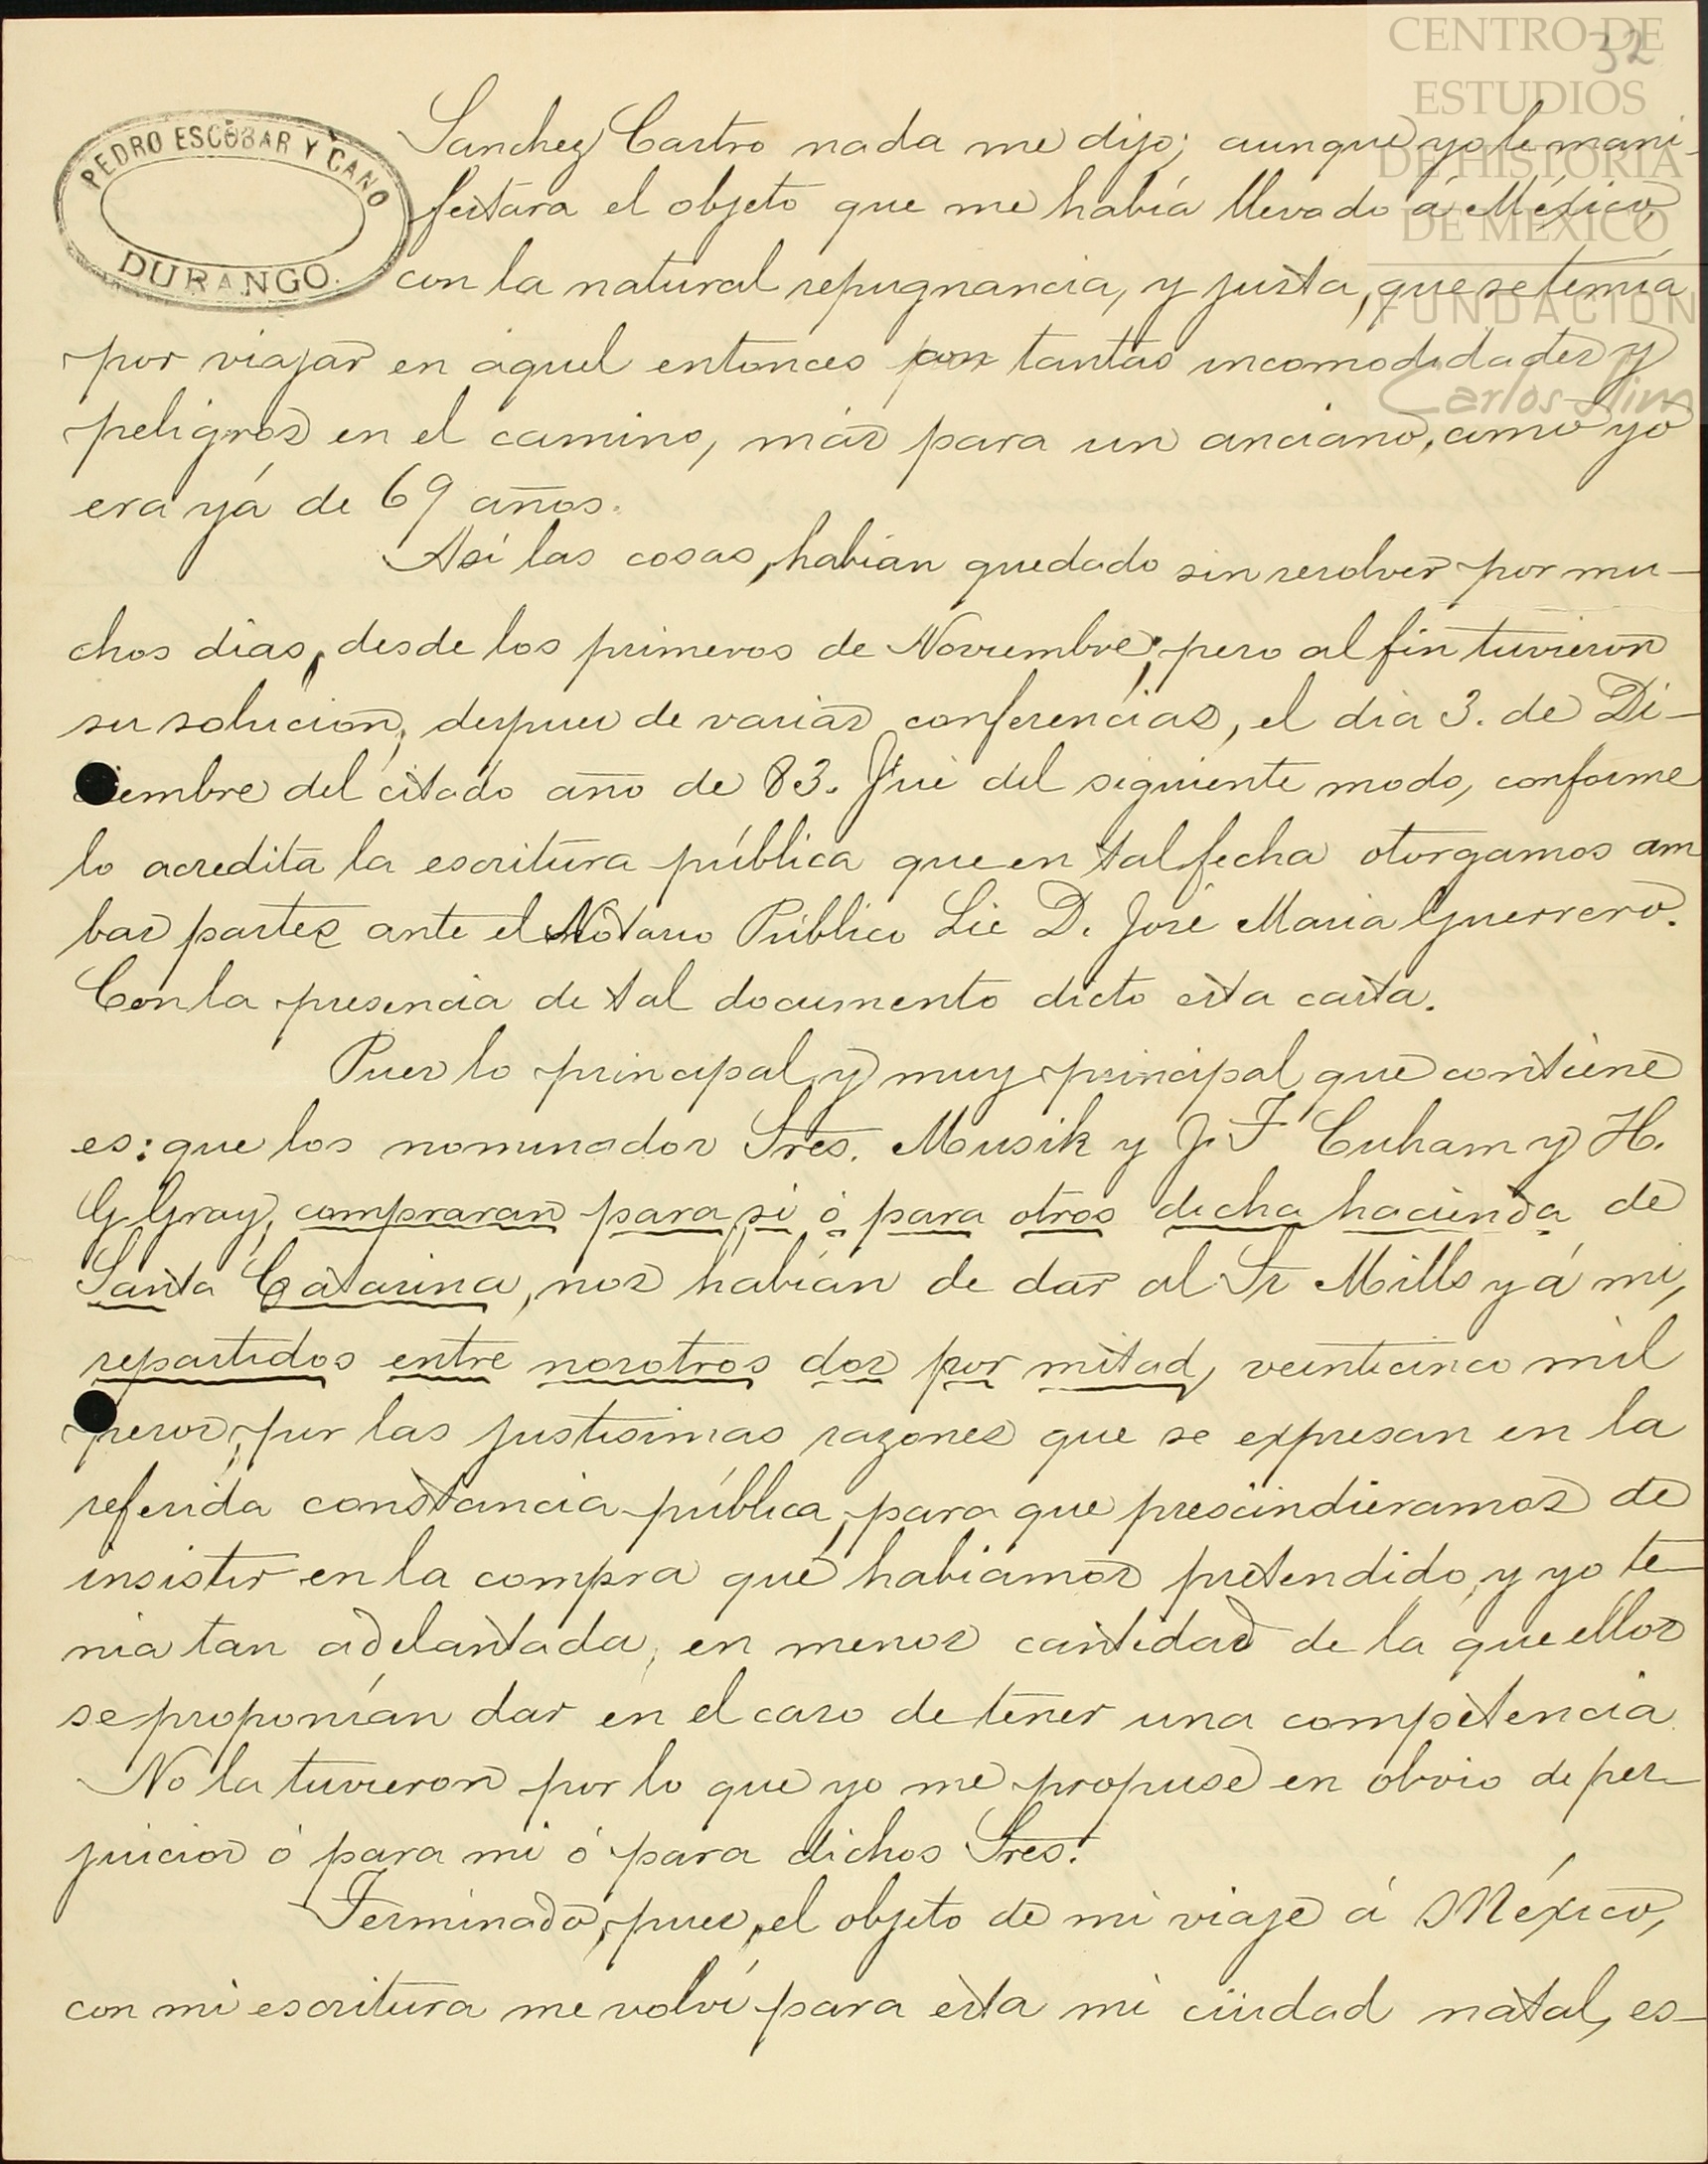 CENTRO DE
ESTUDIOS
DE HISTORIA
DE MÉXICO
FUNDACIÓN
Carlos Slim
32
PEDRO ESCOBAR Y CANO
DURANGO.
Sanchez Castro nada me dijo; aunque yo le mani-
festara el objeto que me había llevado á México,
con la natural repugnancia, y justa, que se temía
por viajar en aquel entonces con tantas incomodidades y
peligros en el camino, más para un anciano, como yo
era yá de 69 años.
Así las cosas, habían quedado sin resolver por mu-
chos dias, desde los primeros de Noviembre; pero al fin tuvieron
su solución, despues de varias conferencias, el dia 3. de Di-
ciembre del citado año de 83. Fué del siguiente modo, conforme
lo acredita la escritura pública que en tal fecha otorgamos am
bas partes ante el Notario Público Lic D. José Maria Guerrero.
Con la presencia de tal documento dicto esta carta.
Pues lo principal y muy principal que contiene
es: que los nominados Sres. Musik y J. F Cuham y H.
G. Gray, compraran para si ó para otros dicha hacienda de
Santa Catarina, nos habían de dar al Sr Mills y á mi,
repartidos entre nosotros dos por mitad, veinticinco mil
pesos, por las justisimas razones que se expresan en la
referida constancia pública, para que prescindieramos de
insistir en la compra que habiamos pretendido, y yo te-
nia tan adelantada, en menos cantidad de la que ellos
se proponían dar en el caso de tener una competencia.
No la tuvieron por lo que yo me propuse en obvio de per-
juicios ó para mi ó para dichos Sres.
Terminado, pues, el objeto de mi viaje á México,
con mi escritura me volví para esta mi ciudad natal, es-